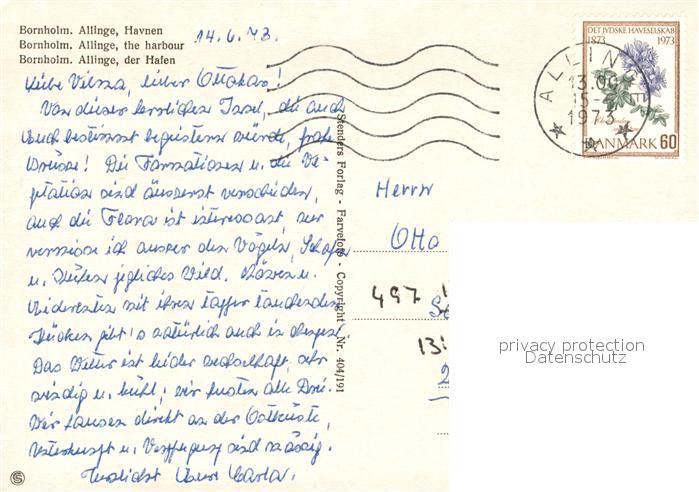 Bornholm. Allinge, Havnen
Bornholm. Allinge, the harbour
Bornholm. Allinge, der Hafen
14.6.73.
Liebe Vilsza, lieber Ottokar!
Von dieser herrlichen Insel, die auch
Euch bestimmt begeistern würde, frohe
Grüsse! Die Formationen u. die Ve-
getation sind äusserst verschieden,
auch die Flora ist interessant, nur
vermisse ich ausser den Vögeln, Schafen
u. Kühen jegliches Wild. Möwen u.
Eiderenten mit ihren tapfer tauchenden
Kücken gibt's natürlich auch in
Das Wetter ist leider wechselhaft, sehr
windig u. kühl; wir husten alle Drei.
Wir hausen direkt an der Ostküste,
Unterkunft u. Verpflegung sind mässig.
Herzlichst Eure
Stenders Forlag - Farvefoto - Copyright - Nr. 404/191
DET JYDSKE HAVESELSKAB
1873 1973
DANMARK 60
ALLINGE
13.00
15-
1973
Herrn
Otto
497
13
privacy protection
Datenschutz